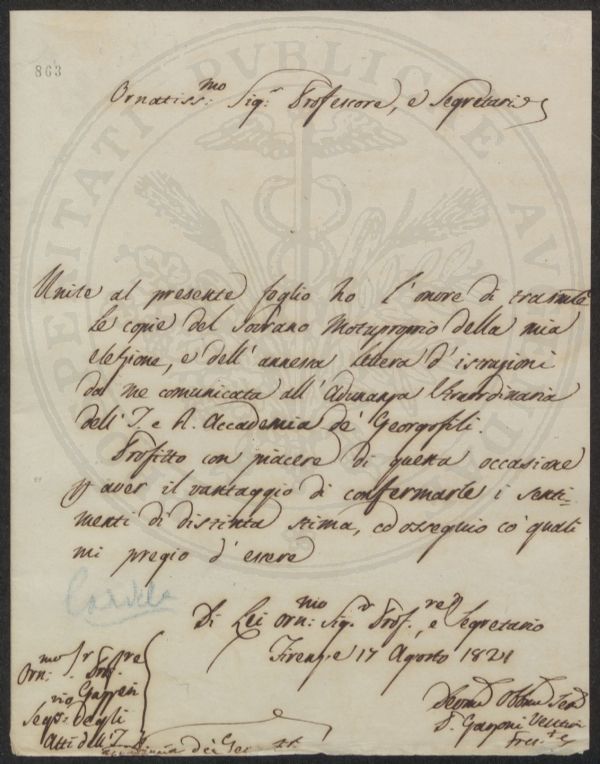 863
Ornatiss:mo Sig.r Professore, e Segretario
Unite al presente foglio ho l'onore di trasmle
le copie del Sovrano Motuproprio della mia
elezione, e dell'annessa lettera d'istruzioni
da me comunicata all'Adunanza Straordinaria
dell'I. e R. Accademia de' Georgofili.
Profitto con piacere di questa occasione
p aver il vantaggio di confermarle i senti=
menti di distinta stima, ed ossequio co' quali
mi pregio d'essere
Di Lei Orn:mo Sig.r Prof.re, e Segretario
Firenze 17 Agosto 1821
Orn:mo Sr Profre
Gazzeri
Segrio degli
Atti dell'I. R.
Accademia dei Geor
Devmo Obbmo Ser
P. Garzoni Venturi
Preste
PUBLICAE